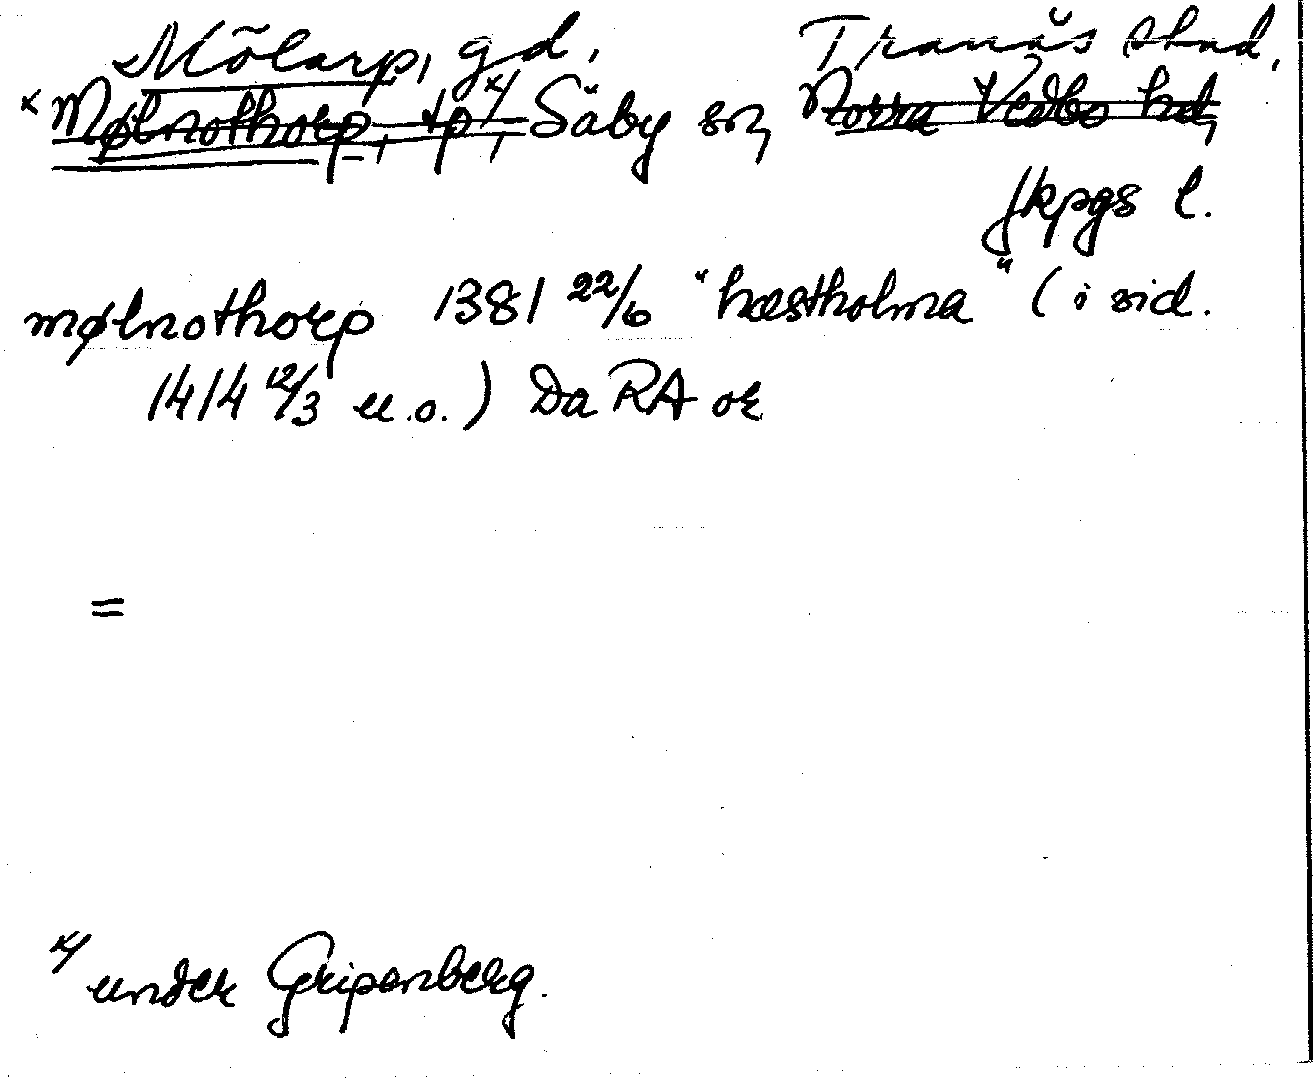 Mölarp, gd, Tranås stad,
x Mølnothorp, tp x/, Säby sn, Norra Vedbo hd,
Jkpgs l.
mølnothorp 1381 22/6 "hæstholma" (i vid.
1414 12/3 u.o.) Da RA or
=
x/ under Gripenberg.